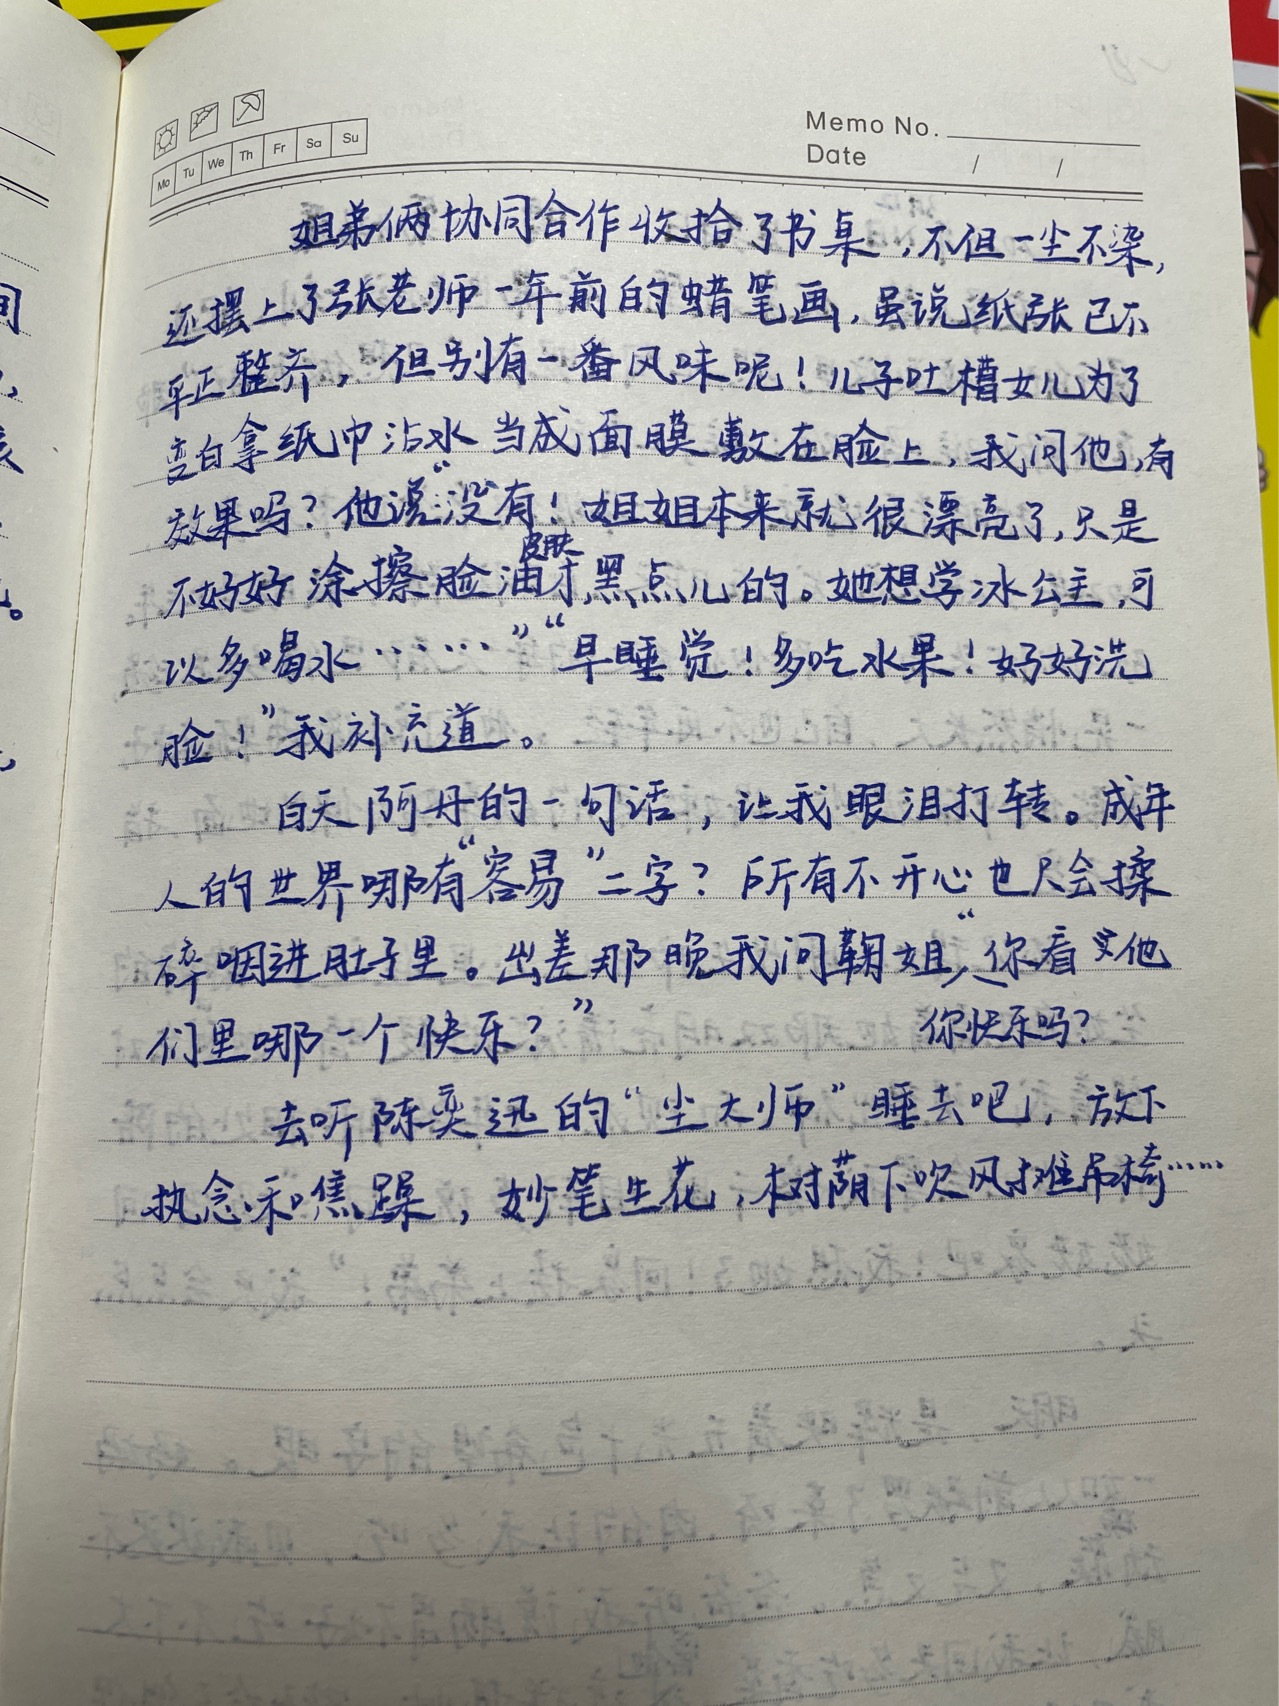 Memo No.
Mo Tu We Th Fr Sa Su
Date / /
姐弟俩协同合作收拾了书桌，不但一尘不染，
还摆上了张老师一年前的蜡笔画，虽说纸张已不
平正整齐，但别有一番风味呢！儿子吐槽女儿为了
变白拿纸巾沾水当成面膜敷在脸上，我问他，有
效果吗？他说“没有！姐姐本来就很漂亮了，只是
皮肤
不好好涂擦脸油才黑点儿的。她想学冰公主，可
以多喝水……”“早睡觉！多吃水果！好好洗
脸！”我补充道。
白天阿丹的一句话，让我眼泪打转。成年
人的世界哪有“容易”二字？所有不开心也只会揉
碎咽进肚子里。出差那晚我问鞠姐，“你看 他
们里哪一个快乐？” 你快乐吗？
去听陈奕迅的“尘大师”睡去吧，放下
执念和焦躁，妙笔生花，树荫下吹风摊吊椅……